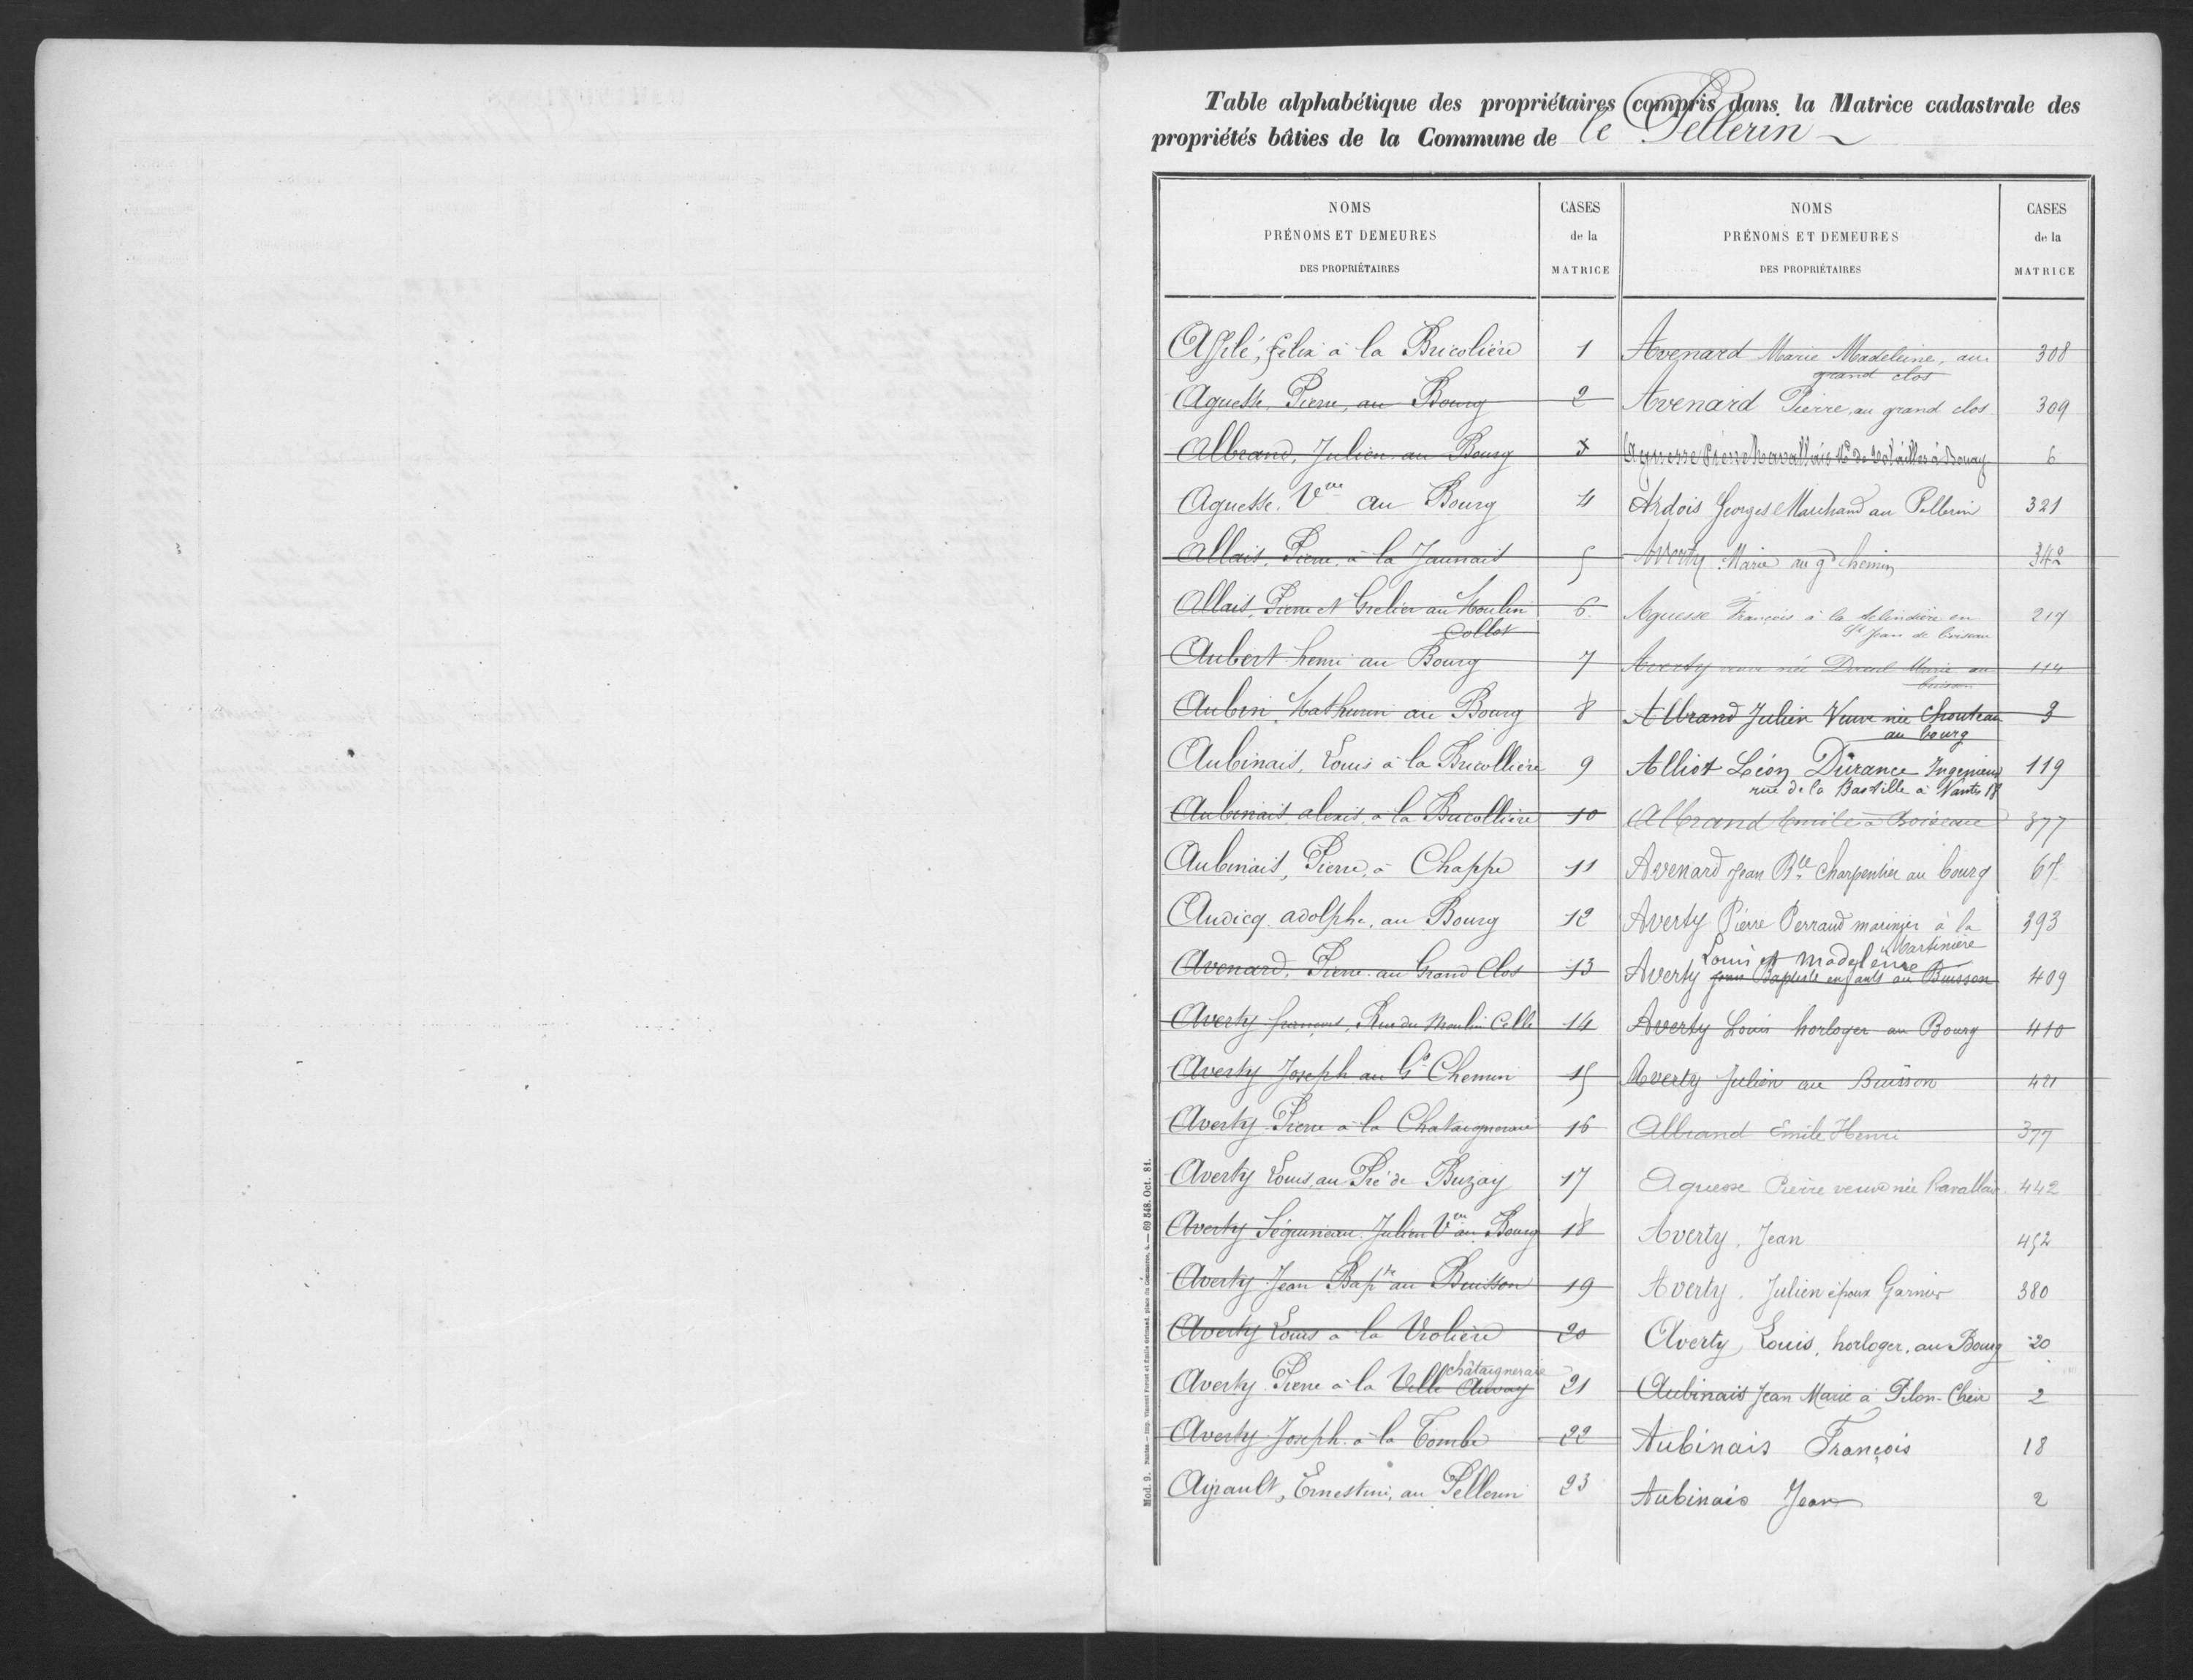 Table alphabétique des propriétaires compris dans la Matrice cadastrale des
propriétés bâties de la Commune de le Pellerin
NOMS
PRÉNOMS ET DEMEURES
DES PROPRIÉTAIRES
CASES
de la
MATRICE
NOMS
PRÉNOMS ET DEMEURES
DES PROPRIÉTAIRES
CASES
de la
MATRICE
Félix à la Bricolière 1
Aguesse, Pierre, au Bourg 2
Albrand, Julien au Bourg 3
Aguesse, Vve au Bourg 4
Allais, Pierre, à la Jaunais 5
Allais, Pierre et Grelier au Moulin 6
Collot
Aubert henri au Bourg 7
Aubin, Mathurin au Bourg 8
Aubinais, Louis à la Bricollière 9
Aubinais, alexis, à la Bricollière 10
Aubinais, Pierre, à Chappe 11
Audicq adolphe, au Bourg 12
Avenard, Pierre au Grand Clos 13
Averty françois, Rue du Moulin Colle 14
Averty Joseph au Gd Chemin 15
Averty Pierre à la Chataigneraie 16
Averty Louis, au Pré de Buzay 17
Averty Séguineau Julien Vve au Bourg 18
Averty Jean Bapte au Buisson 19
Averty Louis à la Violière 20
châtaigneraie
Averty Pierre à la Ville Auvay 21
Averty Joseph à la Tombe 22
Airault, Ernestine, au Pellerin 23
Avenard Marie Madeleine, au 308
grand clos
Avenard Pierre, au grand clos 309
Aguesse Pierre Havallais Md de Volailles à Bouay 6
Ardois Georges Marchand au Pellerin 321
Averty Marie au gd chemin 342
Aguesse François à la en 217
St Jean de Boiseau
Averty née Marie au 114
buisson
Albrand Julien Veuve née Chouteau 3
au bourg
Alliot Léon Durance Ingenieur 119
rue de la Bastille à Nantes 18
Albrand Emile à Boiseau 377
Avenard Jean Bte Charpentier au bourg 67
Averty Pierre Perraud marinier à la 393
Martinière
Louis et Madeleine
Averty Jean Baptiste enfants au Buisson 409
Averty Louis horloger au Bourg 410
Averty Julien au Buisson 421
Albrand Emile Henri 377
Aguesse Pierre veuve née Havallais 442
Averty, Jean 452
Averty, Julien époux Garnier 380
Averty, Louis, horloger, au Bourg 20
Aubinais Jean Marie à Pilon-Cheir 2
Aubinais François 18
Aubinais Jean 2
Mod. 9.
69.548. Oct. 81.